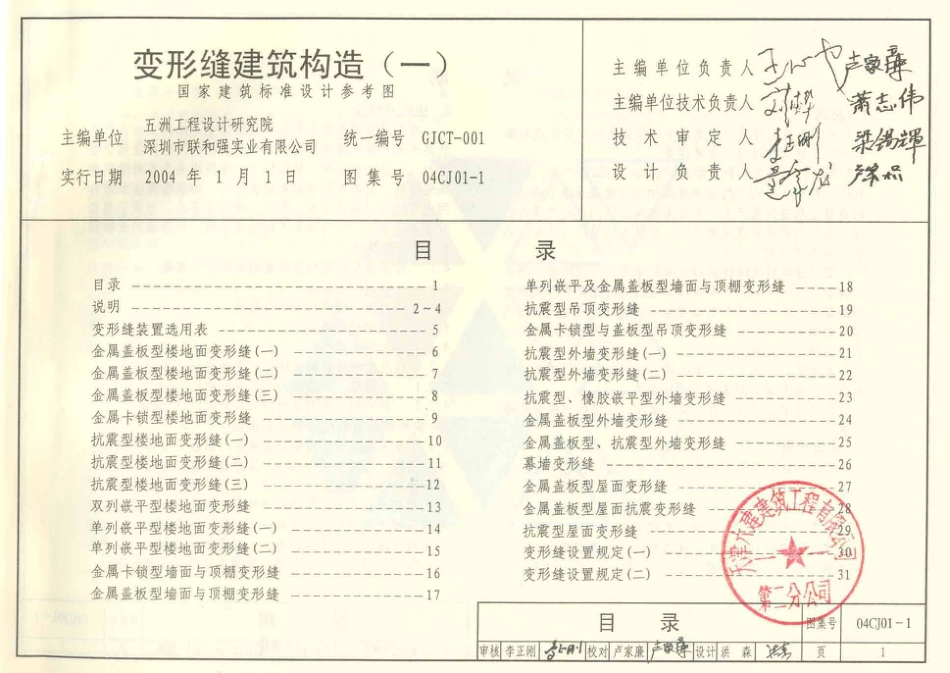 变形缝建筑构造（一）
国家建筑标准设计参考图
主编单位 五洲工程设计研究院
深圳市联和强实业有限公司
统一编号 GJCT-001
实行日期 2004 年 1 月 1 日
图集号 04CJ01-1
主编单位负责人 卢家康
主编单位技术负责人 萧志伟
技术审定人 李正刚 梁锡辉
设计负责人
目 录
目录 1
说明 2~4
变形缝装置选用表 5
金属盖板型楼地面变形缝(一) 6
金属盖板型楼地面变形缝(二) 7
金属盖板型楼地面变形缝(三) 8
金属卡锁型楼地面变形缝 9
抗震型楼地面变形缝(一) 10
抗震型楼地面变形缝(二) 11
抗震型楼地面变形缝(三) 12
双列嵌平型楼地面变形缝 13
单列嵌平型楼地面变形缝(一) 14
单列嵌平型楼地面变形缝(二) 15
金属卡锁型墙面与顶棚变形缝 16
金属盖板型墙面与顶棚变形缝 17
单列嵌平及金属盖板型墙面与顶棚变形缝 18
抗震型吊顶变形缝 19
金属卡锁型与盖板型吊顶变形缝 20
抗震型外墙变形缝(一) 21
抗震型外墙变形缝(二) 22
抗震型、橡胶嵌平型外墙变形缝 23
金属盖板型外墙变形缝 24
金属盖板型、抗震型外墙变形缝 25
幕墙变形缝 26
金属盖板型屋面变形缝 27
金属盖板型屋面抗震变形缝 28
抗震型屋面变形缝 29
变形缝设置规定(一) 30
变形缝设置规定(二) 31
天津市建建筑工程有限公司
第二分公司
目 录 图集号 04CJ01-1
审核 李正刚 校对 卢家康 设计 洪森 页 1